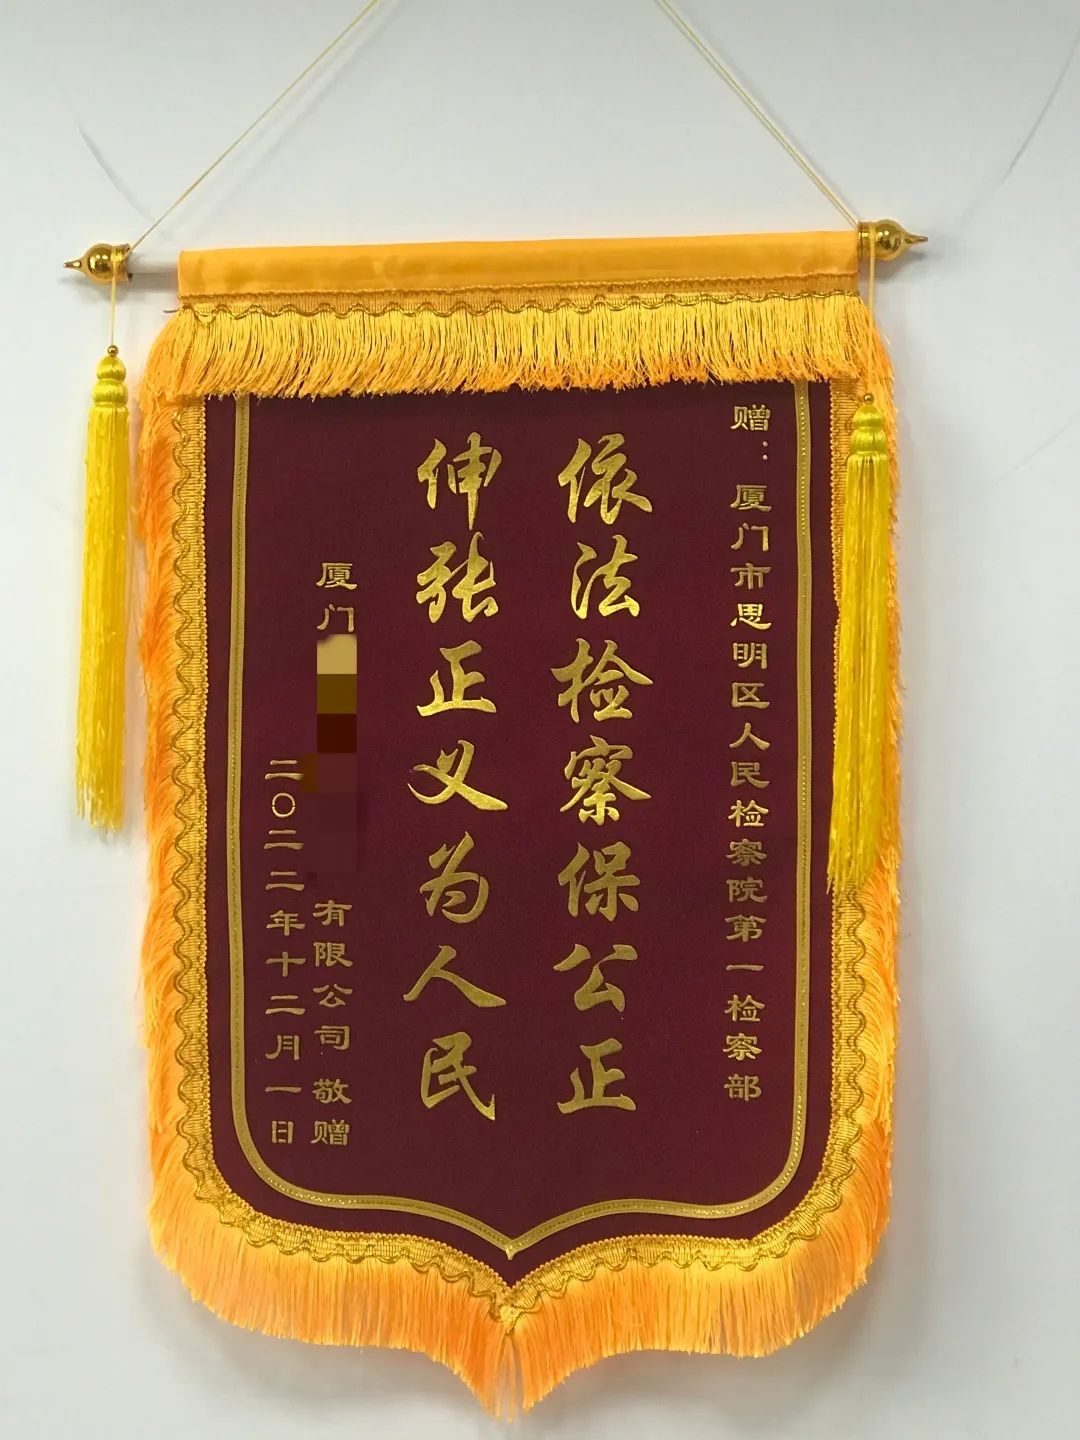 赠：厦门市思明区人民检察院第一检察部
依法检察保公正
伸张正义为人民
厦门 有限公司 敬赠
二〇二二年十二月一日